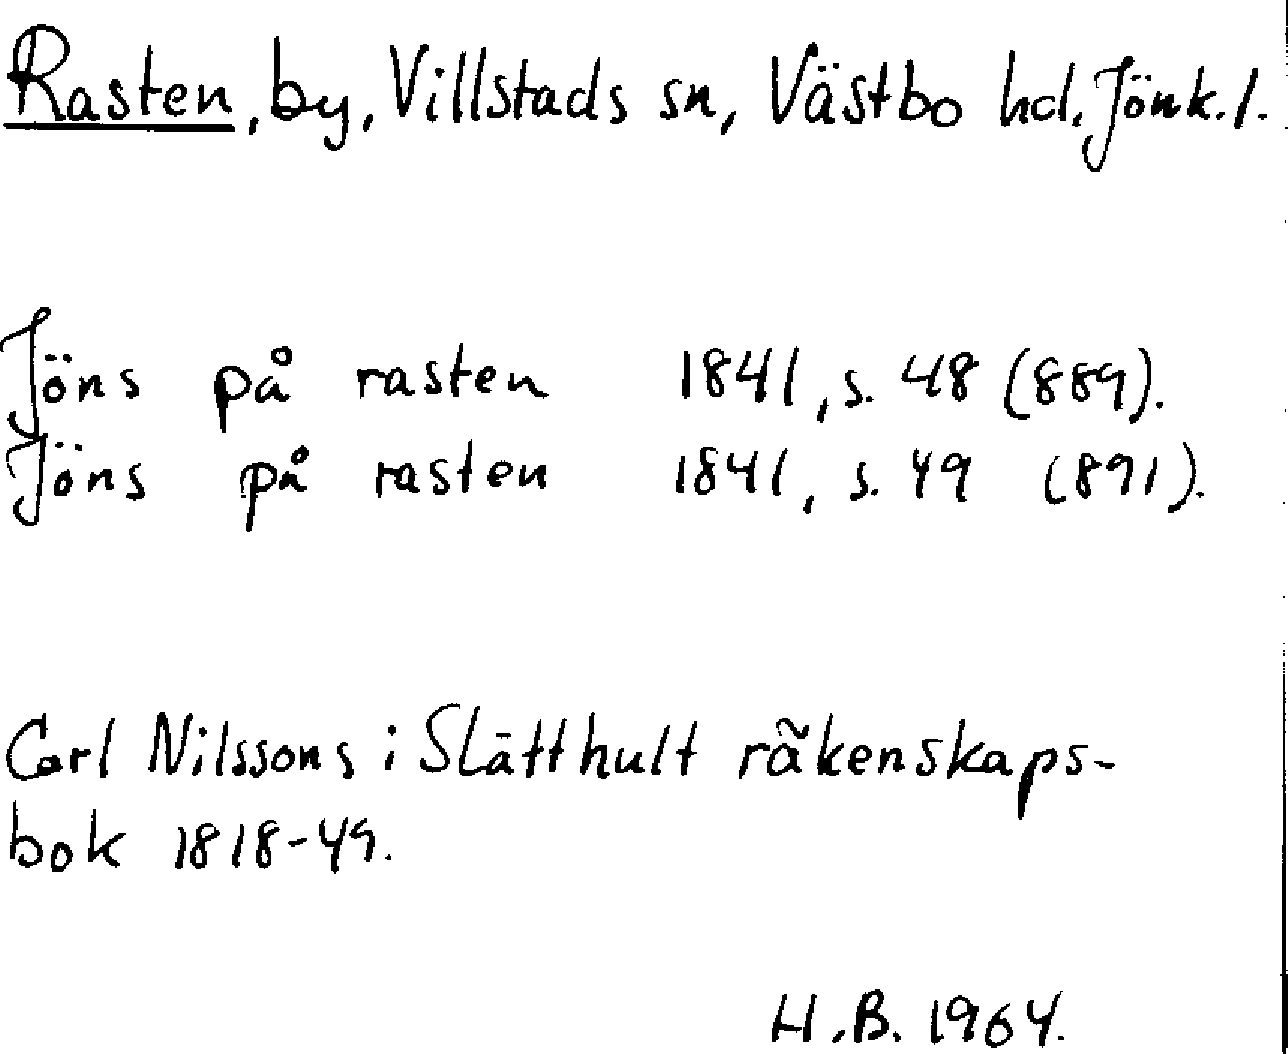 Rasten, by, Villstads sn, Västbo hd. Jönk. l.
Jöns på rasten 1841, s. 48 (889).
Jöns på rasten 1841, s. 49 (891).
Carl Nilssons i Slätthult räkenskaps-
bok 1818-49.
H.B. 1964.